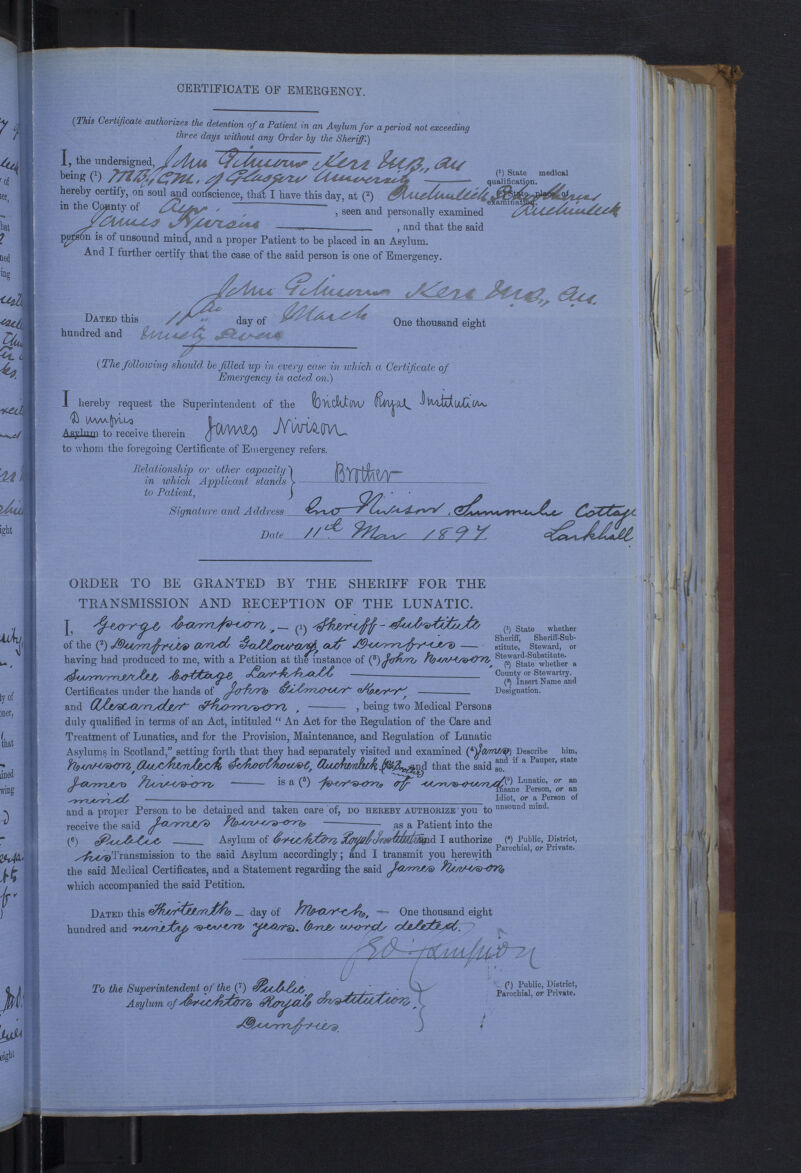 CERTIFICATE OF EMERGENCY.
(This Certificate authorizes the detention of a Patient in an Asylum for a period not exceeding
three days without any Order by the Sheriff.)
I, the undersigned, John Gilmour Kerr M.B., CM
being (1) M.B., C.M. of Glasgow University
(1) State medical
qualification.
hereby certify, on soul and conscience, that I have this day, at (2) Auchinleck
(2) State place of
examination.
Auchinleck
in the County of Ayr, seen and personally examined
James Nivison, and that the said
person is of unsound mind, and a proper Patient to be placed in an Asylum.
And I further certify that the case of the said person is one of Emergency.
John Gilmour Kerr M.B., CM.
DATED this 11th day of March One thousand eight
hundred and ninety seven
(The following should be filled up in every case in which a Certificate of
Emergency is acted on.)
I hereby request the Superintendent of the Crichton Royal Institution
Dumfries
Asylum to receive therein James Nivison
to whom the foregoing Certificate of Emergency refers.
Relationship or other capacity
in which Applicant stands
to Patient,
Brother
Signature and Address Jno Nivison, Summerlee Cottage
Larkhall
Date 11th Mar 1897.
ORDER TO BE GRANTED BY THE SHERIFF FOR THE
TRANSMISSION AND RECEPTION OF THE LUNATIC.
I, George Campion, — (1) Sheriff-Substitute
of the (2) Dumfries and Galloway, at Dumfries —
having had produced to me, with a Petition at the instance of (3) John Nivison,
Summerlee Cottage Larkhall
Certificates under the hands of John Gilmour Kerr,
and Alexander Thomson, , being two Medical Persons
(1) State whether
Sheriff, Sheriff-Sub-
stitute, Steward, or
Steward-Substitute.
(2) State whether a
County or Stewartry.
(3) Insert Name and
Designation.
duly qualified in terms of an Act, intituled " An Act for the Regulation of the Care and
Treatment of Lunatics, and for the Provision, Maintenance, and Regulation of Lunatic
Asylums in Scotland," setting forth that they had separately visited and examined (4) James
Nivison, Auchenleck Schoolhouse, Auchenleck and that the said
James Nivison is a (5) person of unsound
mind
(4) Describe him,
and if a Pauper, state
so.
(5) Lunatic, or an
Insane Person, or an
Idiot, or a Person of
unsound mind.
and a proper Person to be detained and taken care of, DO HEREBY AUTHORIZE you to
receive the said James Nivison as a Patient into the
(6) Public Asylum of Crichton Royal Institution and I authorize
(6) Public, District,
Parochial, or Private.
his Transmission to the said Asylum accordingly; and I transmit you herewith
the said Medical Certificates, and a Statement regarding the said James Nivison
which accompanied the said Petition.
DATED this Thirteenth — day of March, — One thousand eight
hundred and ninety seven years. One word deleted.
Campion
To the Superintendent of the (7) Public
Asylum of Crichton Royal Institution,
Dumfries.
(7) Public, District,
Parochial, or Private.